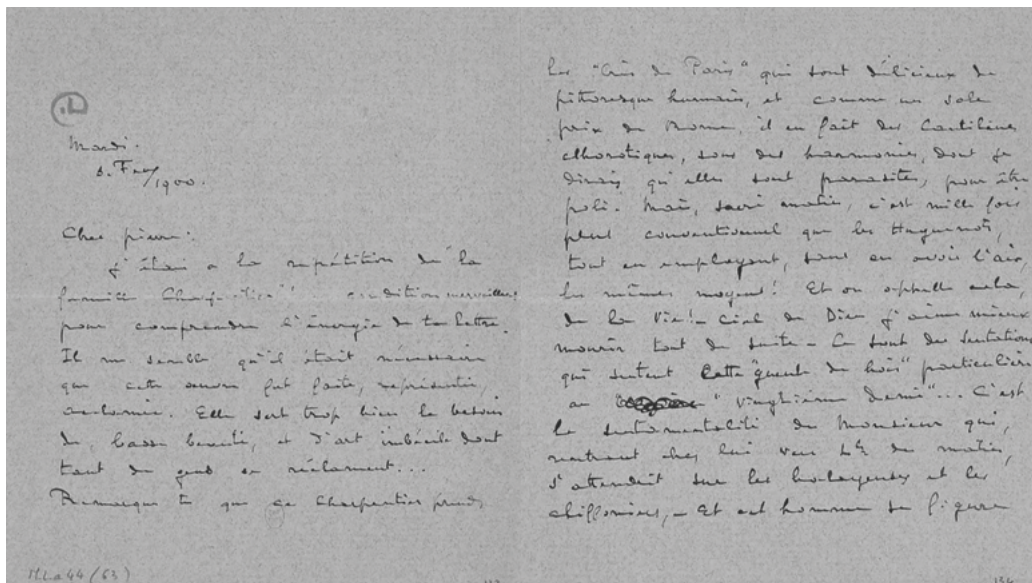 Mardi.
6. Fev/1900.
Cher pierre.
j'étais a la repétition de la
famille Charpentier" condition merveilleuse
pour comprendre l'énergie de ta lettre.
Il me semble qu'il était nécessaire
que cette œuvre fut faite, représentée,
acclamée. Elle sert trop bien le besoin
de, basse beauté, et d'art imbécile dont
tant de gens se réclament...
Remarque tu que ce Charpentier prend,
les "Cris de Paris" qui sont délicieux de
pittoresque humain, et comme un sale
prix de Rome, il en fait des Cantilènes
chlorotiques, sous des harmonies, dont je
dirais qu'elles sont parasites, pour être
poli. Mais, sacré matin, c'est mille fois
plus conventionnel que les Huguenots,
tout en employant, sans en avoir l'air,
les mêmes moyens! Et on appelle cela,
de la Vie! – Ciel de Dieu j'aime mieux
mourir tout de suite – Ce sont des sentations
qui sentent Cette "gueule de bois" particulière
au "vingtième demi"... C'est
la sentimentalité du Monsieur qui,
rentrant chez lui vers 4h du matin,
s'attendrit sur les balayeuses et les
chiffonniers, – Et cet homme se figure
MLa 44 (63)